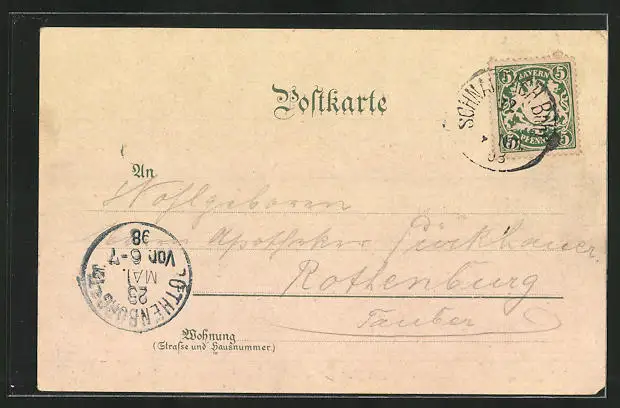 Postkarte
5 BAYERN 5
5 PFENNIG 5
SCHNA
H.BHF.
98
An
Wohlgeboren
Apotheker Pürkhauer
Rothenburg
Tauber
ROTHENBURG
23
MAI.
Vor. 6-7
98
Wohnung
(Straße und Hausnummer.)